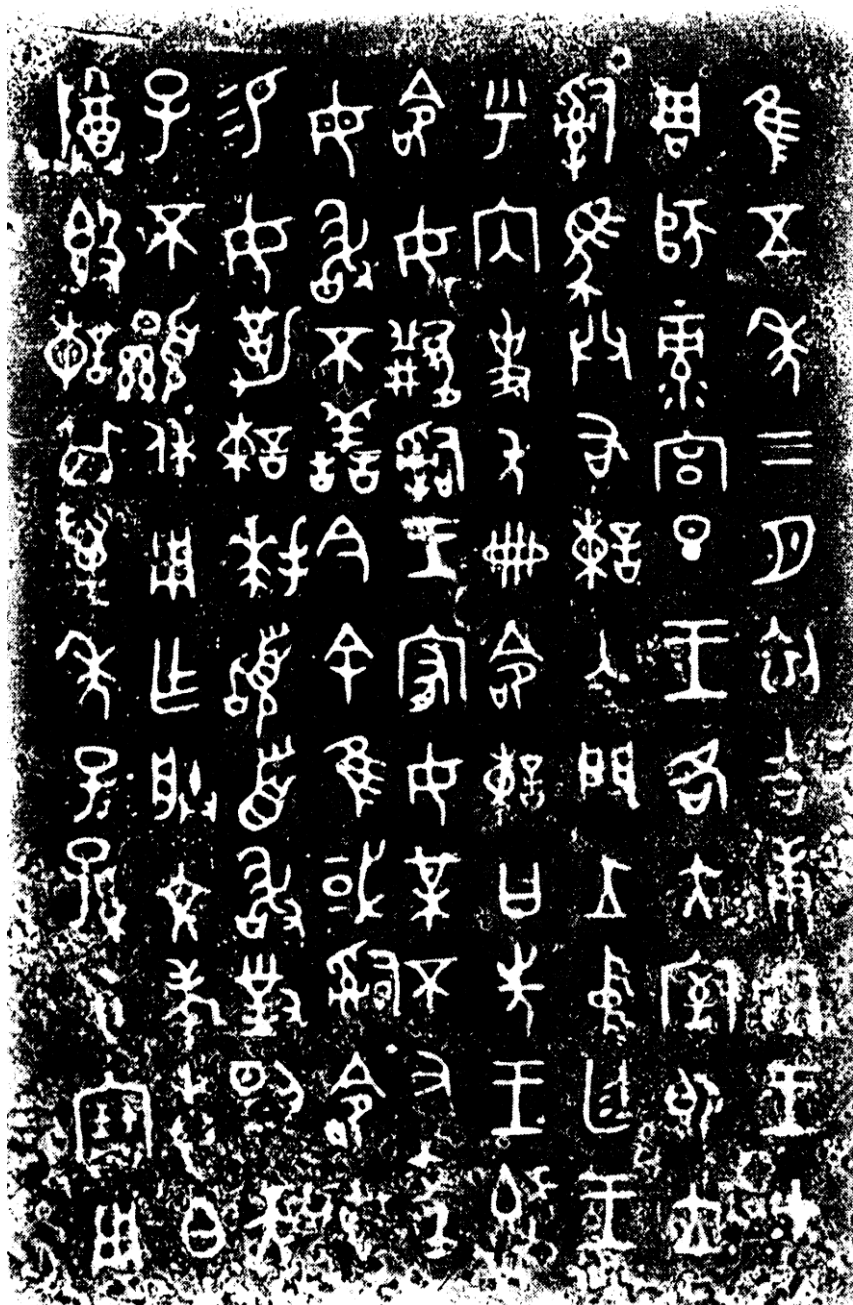 隹五年三月初吉庚寅王才
周師彔宮旦王各大室即立
𤔲馬共右諫入門立中廷王
乎內史冊命諫曰先王既
命女𤔲王宥女某不又聞
母敢不善今余隹或𤔲命女
易女勒諫拜𩒨首敢對揚天
子不顯休用乍朕文考叀白
尊𣪘諫其萬年子子孫孫永寶用